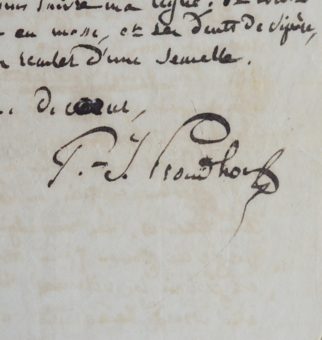 suivre ma ligne. 
en masse, et les dents de vipère,
reculer d'une semelle.
de cœur,
P.-J. Proudhon